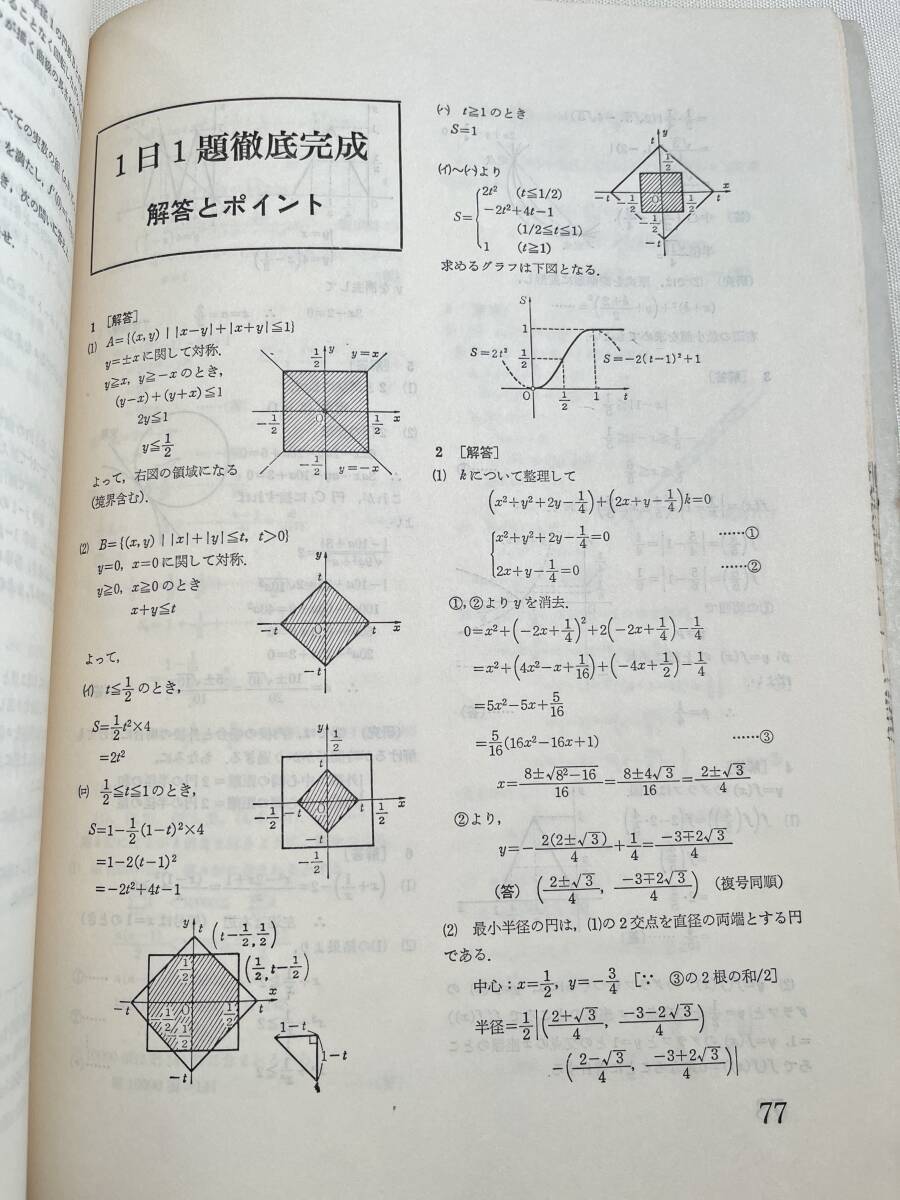 1日1題徹底完成
解答とポイント
1 [解答]
(1) A={(x, y) | |x−y|+|x+y|≦1}
y=±xに関して対称.
y≧x, y≧−xのとき,
(y−x)+(y+x)≦1
2y≦1
y≦1/2
よって, 右図の領域になる
(境界含む).
1/2
y
y=x
−1/2
O
1/2
x
−1/2
y=−x
(2) B={(x, y) | |x|+|y|≦t, t>0}
y=0, x=0に関して対称.
y≧0, x≧0のとき
x+y≦t
y
t
−t
O
t
x
−t
よって,
(イ) t≦1/2のとき,
S=1/2t²×4
=2t²
y
1/2
t
−1/2
−t
O
t
1/2
x
−t
−1/2
(ロ) 1/2≦t≦1のとき,
S=1−1/2(1−t)²×4
=1−2(t−1)²
=−2t²+4t−1
y
t
(t−1/2, 1/2)
1/2
(1/2, t−1/2)
x
−t
−1/2
O
1/2
t
−1/2
−t
1−t
1−t
(ハ) t≧1のとき
S=1
y
t
1/2
−t
−1/2
O
1/2
t
x
−1/2
−t
(イ)〜(ハ)より
S={2t² (t≦1/2)
−2t²+4t−1
(1/2≦t≦1)
1 (t≧1)
求めるグラフは下図となる.
S
1
S=2t²
1/2
S=−2(t−1)²+1
O
1/2
1
t
2 [解答]
(1) kについて整理して
(x²+y²+2y−1/4)+(2x+y−1/4)k=0
{x²+y²+2y−1/4=0 ……①
2x+y−1/4=0 ……②
①, ②よりyを消去.
0=x²+(−2x+1/4)²+2(−2x+1/4)−1/4
=x²+(4x²−x+1/16)+(−4x+1/2)−1/4
=5x²−5x+5/16
=5/16(16x²−16x+1) ……③
x=8±√8²−16/16=8±4√3/16=2±√3/4
②より,
y=−2(2±√3)/4+1/4=−3∓2√3/4
(答) (2±√3/4, −3∓2√3/4) (複号同順)
(2) 最小半径の円は, (1)の2交点を直径の両端とする円
である.
中心：x=1/2, y=−3/4 [∵ ③の2根の和/2]
半径=1/2|(2+√3/4, −3−2√3/4)
−(2−√3/4, −3+2√3/4)|
77